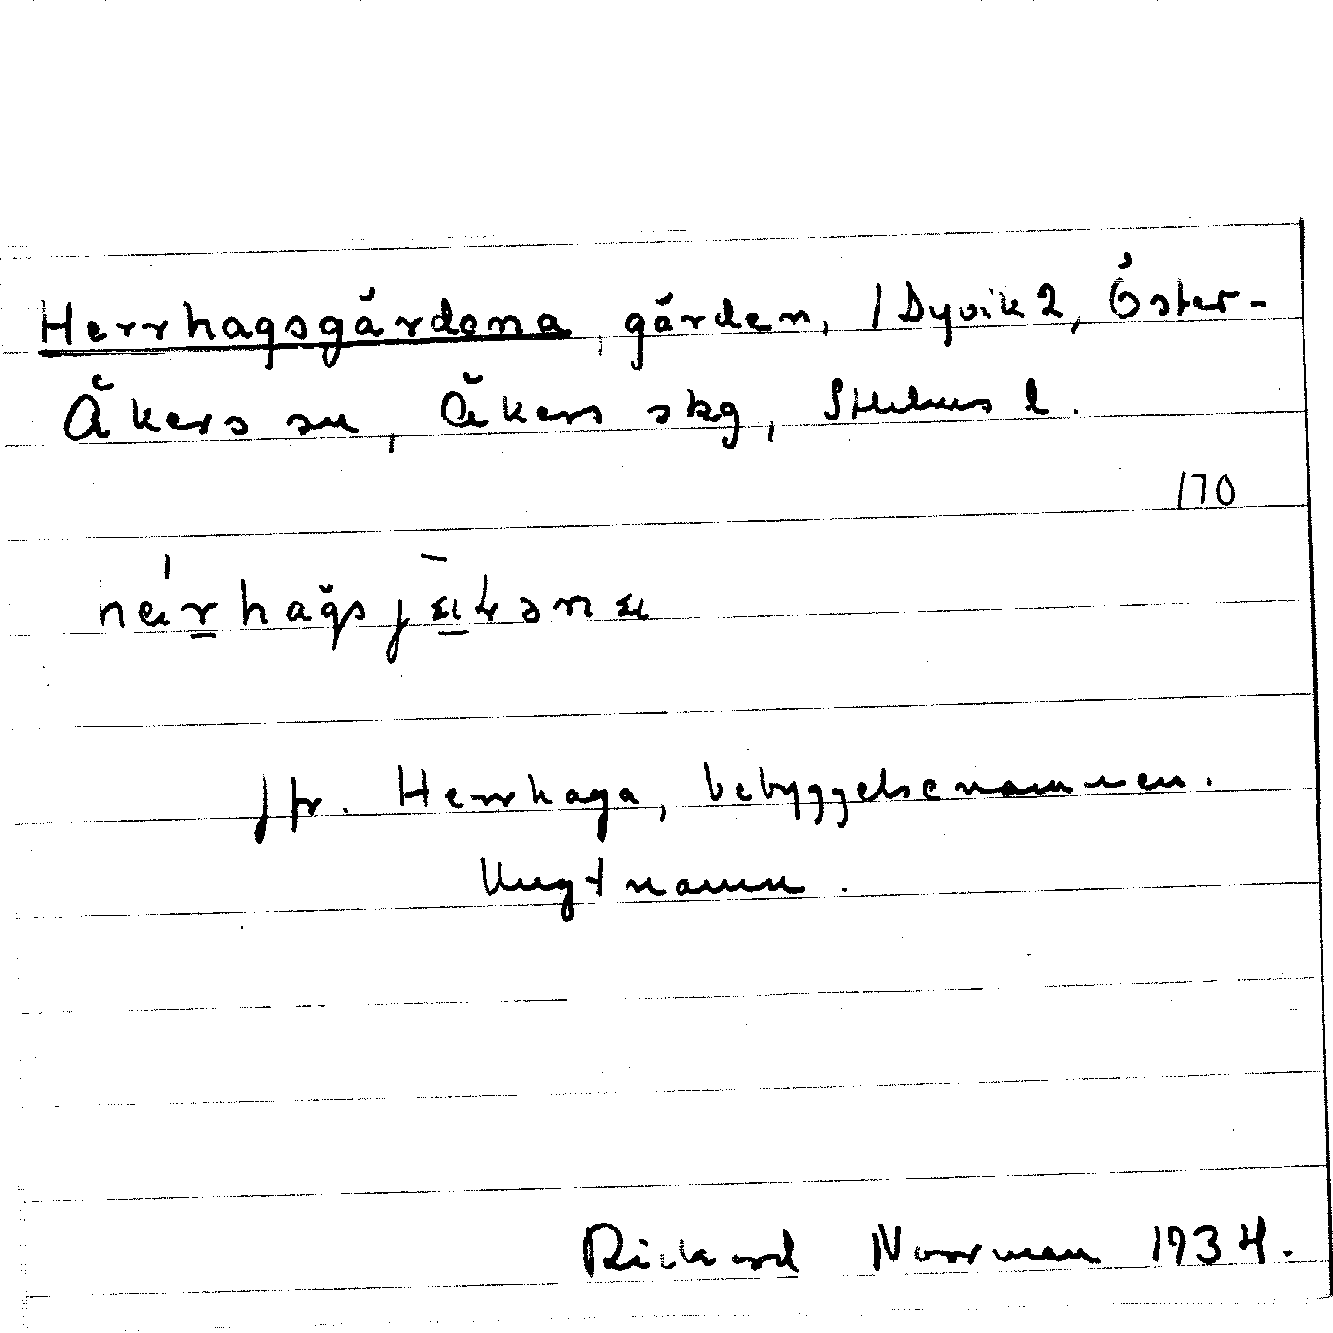 Herrhagsgårdena, gården, / Dyvik 2, Öster-
Åkers sn, Åkers skg, Sthlms l.
170
jfr. Herrhaga, bebyggelsenamnen.
Ungt namn.
Rickard Norrman 1934.